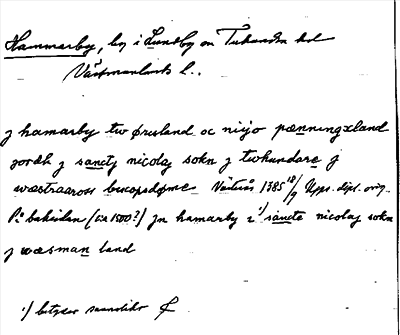 Hammarby, by i Lundby sn Tuhundra hd
Västmanlands l..
j hamarby tw øresland oc nijo pænningxland
jordh j sancti nicolaj sokn j twhundare j
wæstraaross biscopsdøme Västerås 1385 18/9 Upps. dipl. orig.
På baksidan (ca 1500?) Jn hamarby i 1) sancte nicolaj sokn
j wæsman land
1) betyder sannolikt